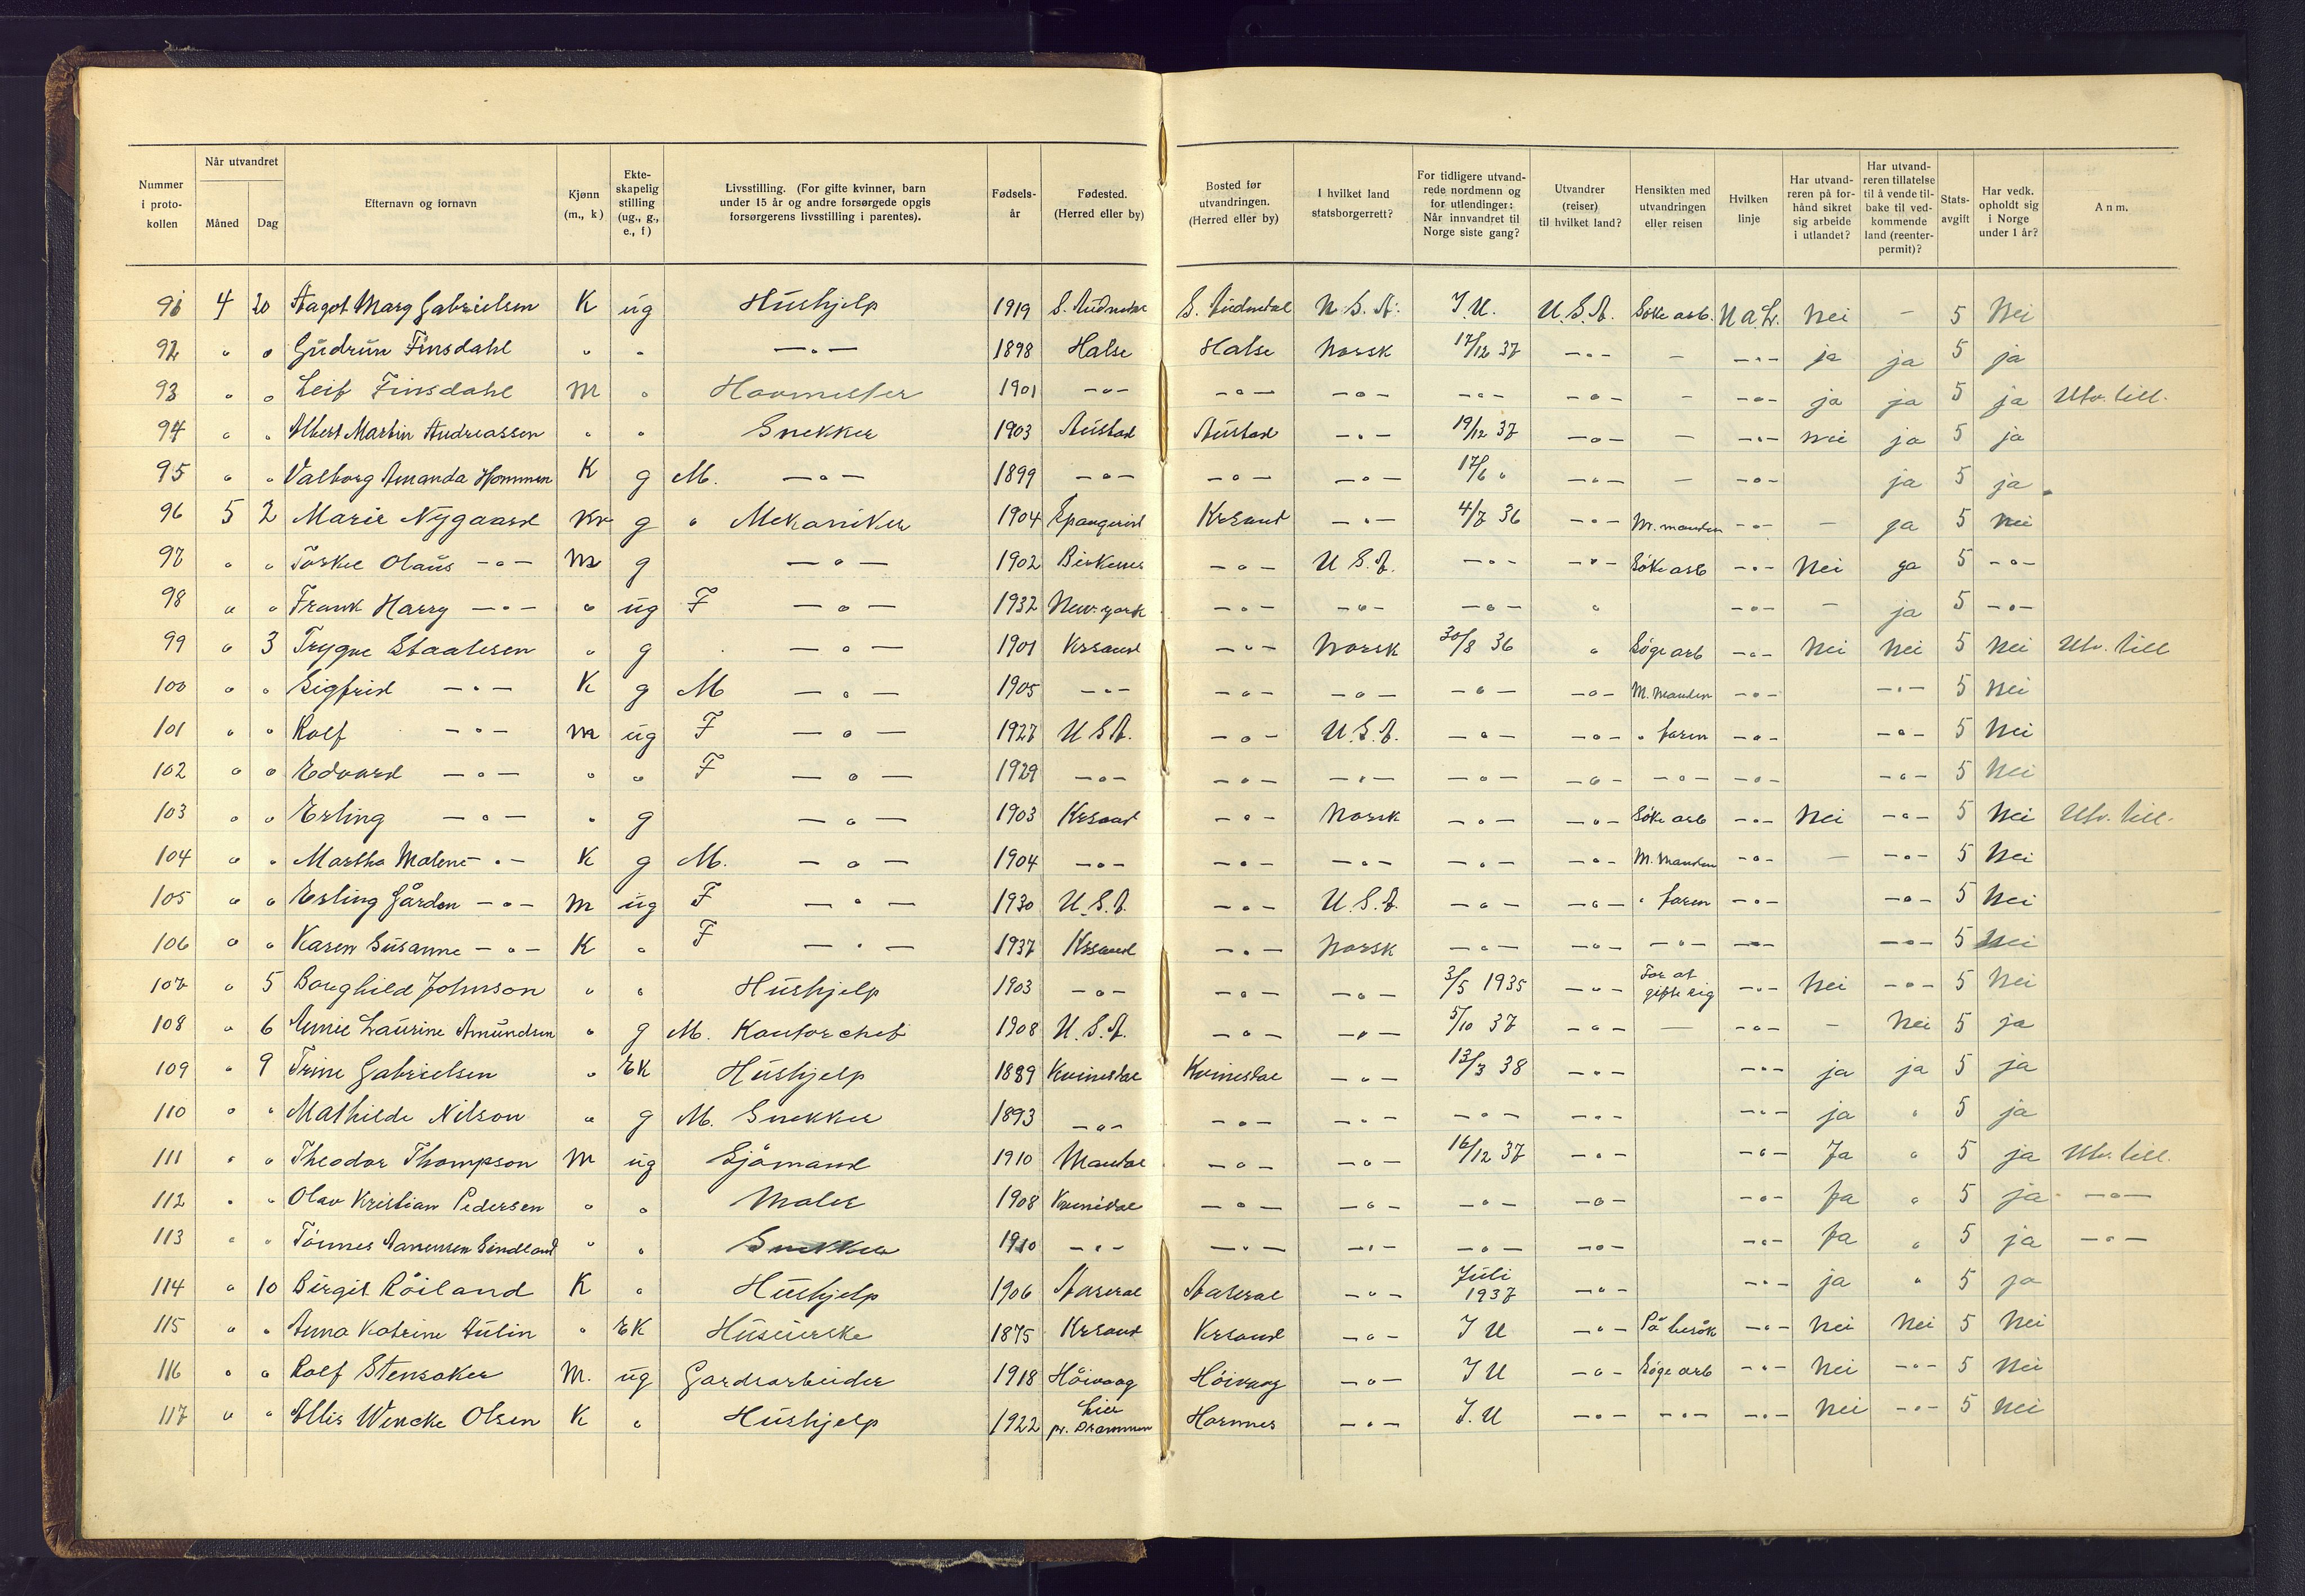 Nummer i protokollen | Når utvandret Måned | Dag | Efternavn og fornavn | Kjønn (m., k) | Ekteskapelig stilling (ug., g., e., f) | Livsstilling. (For gifte kvinner, barn under 15 år og andre forsørgede opgis forsørgerens livsstilling i parentes). | Fødselsår | Fødested. (Herred eller by) | Bosted før utvandringen. (Herred eller by) | I hvilket land statsborgerrett? | For tidligere utvandrede nordmenn og for utlendinger: Når innvandret til Norge siste gang? | Utvandrer (reiser) til hvilket land? | Hensikten med utvandringen eller reisen | Hvilken linje | Har utvandreren på forhånd sikret sig arbeide i utlandet? | Har utvandreren tillatelse til å vende tilbake til vedkommende land (reenterpermit)? | Statsavgift | Har vedk. opholdt sig i Norge under 1 år? | Anm.
91 | 4 | 20 | Aagot Marg Gabrielsen | K | ug | Hushjelp | 1919 | S. Audnedal | S. Audnedal | U. S. A. | I. U. | U. S. A. | Søke arb. | N a L. | Nei | - | 5 | Nei
92 | " | " | Gudrun Finsdahl | " | " | -"- | 1898 | Halse | Halse | Norsk | 17/12 37 | -"- | - | -"- | ja | ja | 5 | ja
93 | " | " | Leif Finsdahl | M | " | Hovmester | 1901 | -"- | -"- | -"- | -"- | -"- | - | -"- | ja | ja | 5 | ja | Utv. till.
94 | " | " | Albert Martin Andreassen | " | " | Snekker | 1903 | Austad | Austad | -"- | 19/12 37 | -"- | - | -"- | nei | ja | 5 | ja
95 | " | " | Valborg Amanda Hommen | K | g | M. -"- | 1899 | -"- | -"- | -"- | 17/6 " | -"- | - | -"- | | ja | 5 | ja
96 | 5 | 2 | Marie Nygaard | Kv | g | " Mekaniker | 1904 | | Krsand | -"- | 4/7 36 | -"- | M. manden | -"- | - | ja | 5 | nei
97 | " | " | Torkel Olaus -"- | M | g | -"- | 1902 | Birkenes | -"- | U S. A. | -"- | -"- | Søke arb | -"- | Nei | ja | 5 | -"-
98 | " | " | Frank Harry -"- | " | ug | F -"- | 1932 | New-york | -"- | -"- | -"- | " | | -"- | - | ja | 5 | -"-
99 | " | 3 | Trygve Staalesen | " | g | -"- | 1901 | Krsand | -"- | Norsk | 30/8 36 | " | Søge arb | -"- | Nei | Nei | 5 | Nei | Utv. till
100 | " | " | Sigfrid -"- | K | g | M -"- | 1905 | -"- | -"- | -"- | -"- | -"- | M. Manden | -"- | | -"- | 5 | Nei
101 | " | " | Rolf -"- | m | ug | F -"- | 1927 | U S A. | -"- | U. S. A. | -"- | -"- | " faren | -"- | | -"- | 5 | Nei
102 | " | " | Edvard -"- | " | " | F -"- | 1929 | -"- | -"- | -"- | -"- | -"- | -"- | -"- | | -"- | 5 | Nei
103 | " | " | Erling -"- | " | g | -"- | 1903 | Krsand | -"- | Norsk | -"- | -"- | Søke arb | -"- | Nei | -"- | 5 | Nei | Utv. till.
104 | " | " | Martha Malene -"- | K | g | M. -"- | 1904 | -"- | -"- | -"- | -"- | -"- | M. Manden | -"- | - | -"- | 5 | Nei
105 | " | " | Erling Gården -"- | M | ug | F -"- | 1930 | U. S. A. | -"- | U. S. A. | -"- | -"- | " faren | -"- | | -"- | 5 | Nei
106 | " | " | Karen Susanne -"- | K | " | F -"- | 1937 | Krsand | -"- | Norsk | -"- | -"- | -"- | -"- | | -"- | 5 | Nei
107 | " | 5 | Borghild Johnson | " | " | Hushjelp | 1903 | -"- | -"- | -"- | 3/5 1935 | -"- | For at gifte sig | -"- | Nei | -"- | 5 | Nei
108 | " | 6 | Annie Laurine Amundsen | " | g | M. Kontorchef | 1908 | U. S. A. | -"- | -"- | 5/10 37 | -"- | - | -"- | - | Nei | 5 | ja
109 | " | 9 | Trine Gabrielsen | " | EK | Hushjelp | 1889 | Kvinesdal | Kvinesdal | -"- | 13/3 38 | -"- | | -"- | ja | ja | 5 | ja
110 | " | " | Mathilde Nilson | " | g | M. Snekker | 1893 | -"- | -"- | -"- | -"- | -"- | | -"- | ja | " | 5 | ja
111 | " | " | Theodor Thompson | M | ug | Sjømand | 1910 | Mandal | -"- | -"- | 16/12 37 | -"- | | -"- | Ja | " | 5 | ja | Utv. till.
112 | " | " | Olav Kristian Pedersen | " | " | Maler | 1908 | Kvinesdal | -"- | -"- | -"- | -"- | | -"- | Ja | " | 5 | ja | -"-
113 | " | " | Tønnes Aanensen | " | " | Snekker | 1910 | -"- | -"- | -"- | -"- | -"- | | -"- | Ja | " | 5 | ja | -"-
114 | " | 10 | Birgit Røiland | K | " | Hushjelp | 1906 | Aaseral | Aaseral | -"- | Juli 1937 | -"- | | -"- | ja | " | 5 | ja
115 | " | " | Anna Katrine Aulin | " | EK | Huseierske | 1875 | Krsand | Krsand | -"- | I U | -"- | På besøk | -"- | Nei | Nei | 5 | Nei
116 | " | " | Rolf Stensaker | M. | ug | Gardsarbeider | 1918 | Høivaag | Høivaag | -"- | I U | -"- | Søge arb | -"- | Nei | -"- | 5 | Nei
117 | " | " | Allis Wencke Olsen | K | " | Hushjelp | 1922 | Lier pr. Drammen | Hornnes | -"- | I. U | -"- | -"- | -"- | Nei | -"- | 5 | Nei